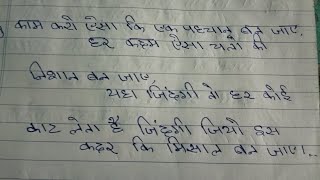 काम करो ऐसा कि एक पहचान बन जाए,
हर कदम ऐसा चलो की
निशान बन जाए,
यहा जिंदगी तो हर कोई
काट लेता है जिंदगी जियो इस
कदर कि मिसाल बन जाए।..